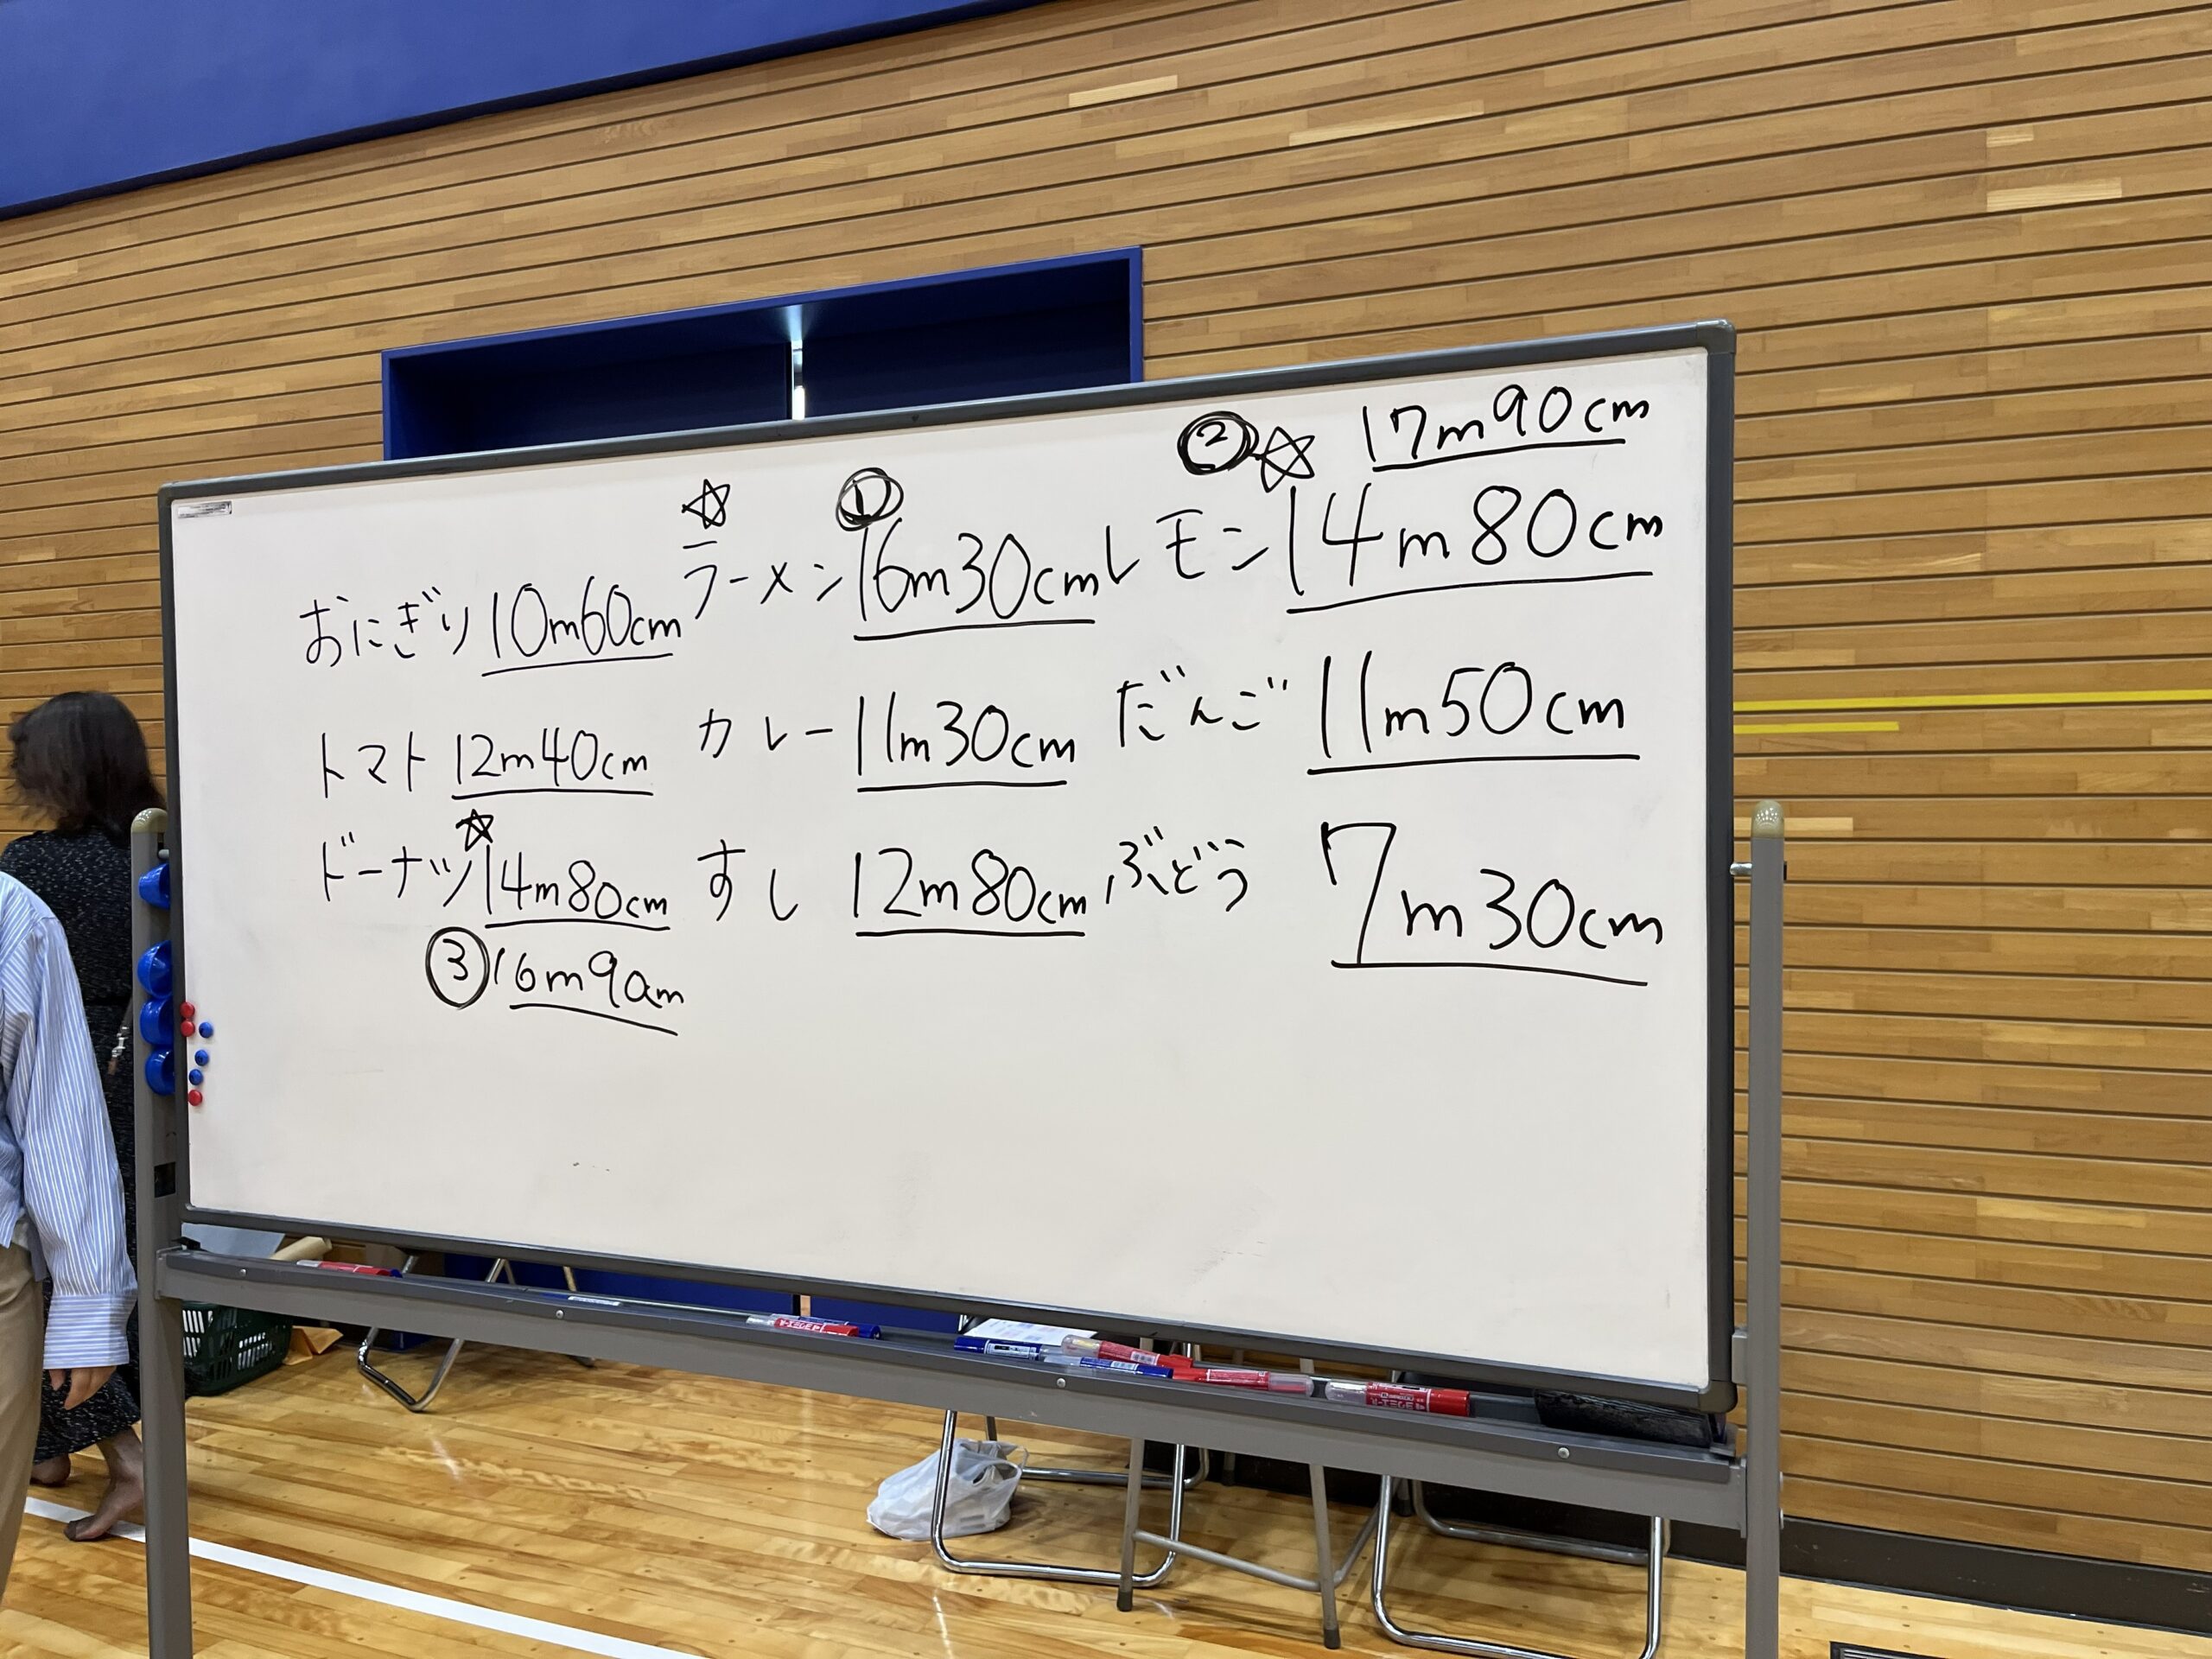 ② ☆ 17m90cm
☆ ①
ラーメン 16m30cm レモン 14m80cm
おにぎり 10m60cm
トマト 12m40cm カレー 11m30cm だんご 11m50cm
☆
ドーナツ 14m80cm すし 12m80cm ぶどう 7m30cm
③ 16m90cm